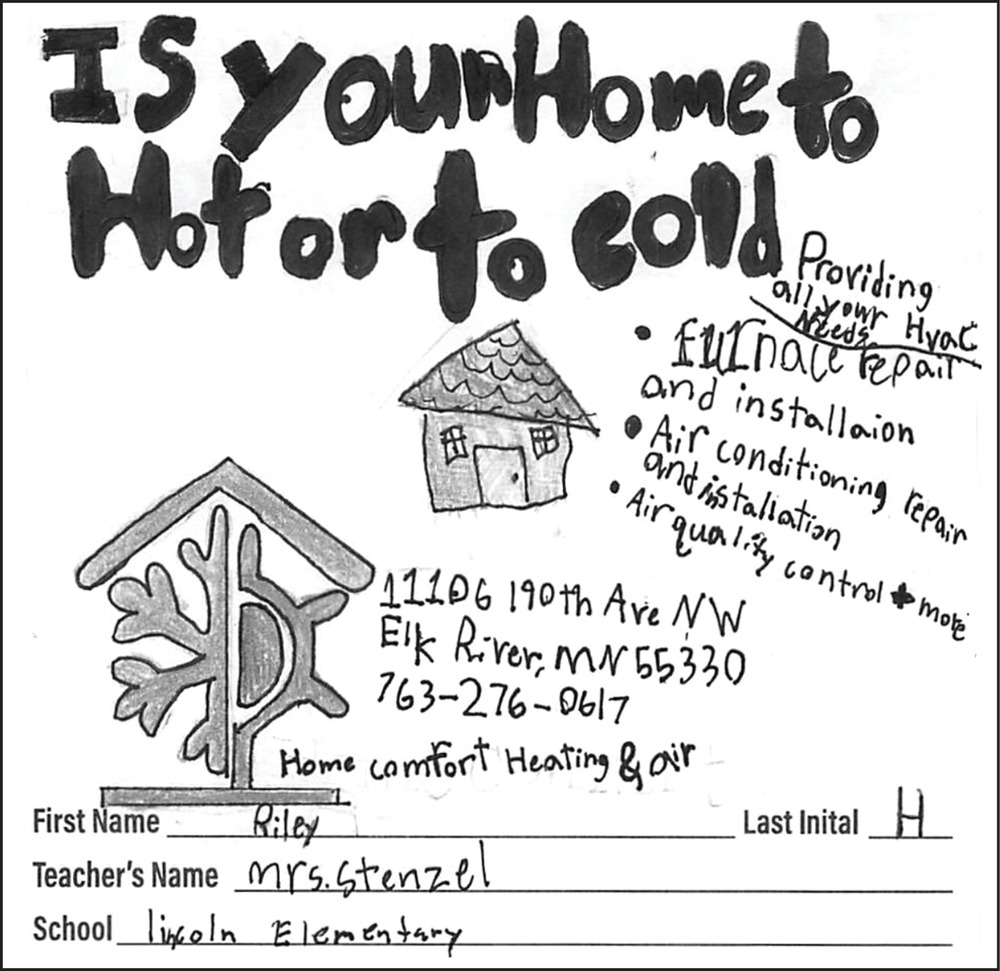 Is your Home to
Hot or to cold
Providing
all your Hvac
Needs
• furnace repair
and installaion
• Air conditioning repair
and installation
• Air quality control + more
11106 190th Ave NW
Elk River, MN 55330
763-276-0617
Home comfort Heating & air
First Name Riley Last Inital H
Teacher's Name Mrs. Stenzel
School lincoln Elementary